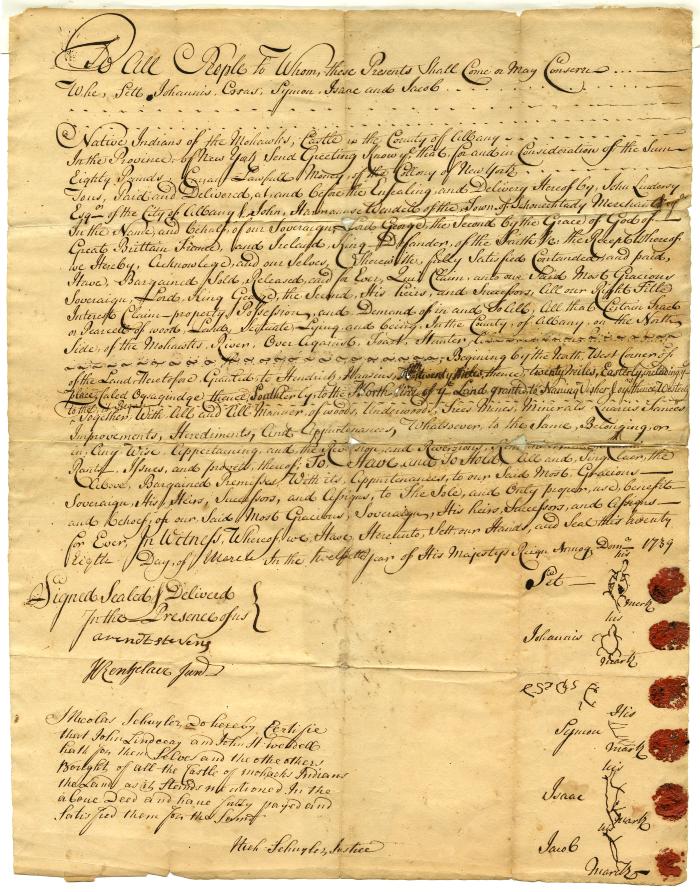 To All People to Whom, these Presents Shall Come or May Concern
Whe, Sett Johannis, Esras, Symon, Isaac and Jacob
Native Indians of the Mohawks, Castle in the County off Albany
In the Province of New York Send Greeting Know ye that for and in Consideration of the Sum
Eighty Pounds Currant Lawfull Money, of the Collony of New York
Paid and Delivered, at and before the Ensealing, and Delivery Hereof by, John
Esqr of the City of Albany & John, Harmanse Wendell of the Town of Schinechtady Merchant
In the Name, and Behalf, of our Soveraign Lord George, the Second by the Grace of God of
Great Brittain France, and Ireland, King, Defander, of the Faith &c the Recept Whereof
we Hereby, Acknowledge, and our Selves, Therewith, fully Satisfied Contanded and paid,
Have, Bargained Sold, Released, and for Ever, Quit Claim, unto our Said Most Gracious
Soveraign, Lord, King George, the Second, His heirs, and Successors, All our Right Title
Interest Claim property Possession, and Demand of in and To All, All that Certain Tract
or Pearcell of wood, Land, Scituate Lying and being, In the County, of Albany, on the North
Side, of the Mohawks, River, Over Against, Foart, Hunter
Begining by the North, West Corner of
of the Land Heretofor, Granted, to Hendrick, Hansen, thence, twenty Miles, Easterly, including
place, Caled thence, Southerly, to the North of ye Land granted to Harmanus Visher & Compy thence, Westerly
to the Together, With All and All Manner of woods, Underwoods, Trees Mines, Minerals Quaries
Improvements, Herediments, And Apputenances, Whatsoever, to the Same, Belonging, or
in, Any Wise, Appertaining, and the Reversion, and Reversions,
Rants, Issues, and proveds, thereof; To, Have and To Hold, All and Singulaer, the
Above, Bargained Premisses With its, Apputenances, to our Said Most Gracious
Soveraign, His Heirs, Successors, and Assigns, to The Sole, and Only proper, use, benefit
and Behoof, of our Said Most Gracious, Soveraign, His heirs, Successors, and Assigns
for Ever, In Witness, Whereof, we, Have, Hereunto, Sett our Hands, and Seal this twenty
Eighth Day, of March In the twelfth year of His Majestys Reign Annoq Domn 1739
Signed Sealed & Delivered
In the Presence of us
arendt stevens
J Rensselaer Junr
his
Set
mark
his
Johannis
mark
His
Symon
mark
his
Isaac
mark
his
Jacob
Mark
I Nicolas Schuyler, Do hereby Certifie
that John Lindesay and John H wendell
hath for them Selves and the others
Bought of all the Castle of mohacks Indians
the Land as it Stends mentioned In the
aboue Deed and haue fully payed and
Satisfied them for the Same
Nich Schuyler, Justice